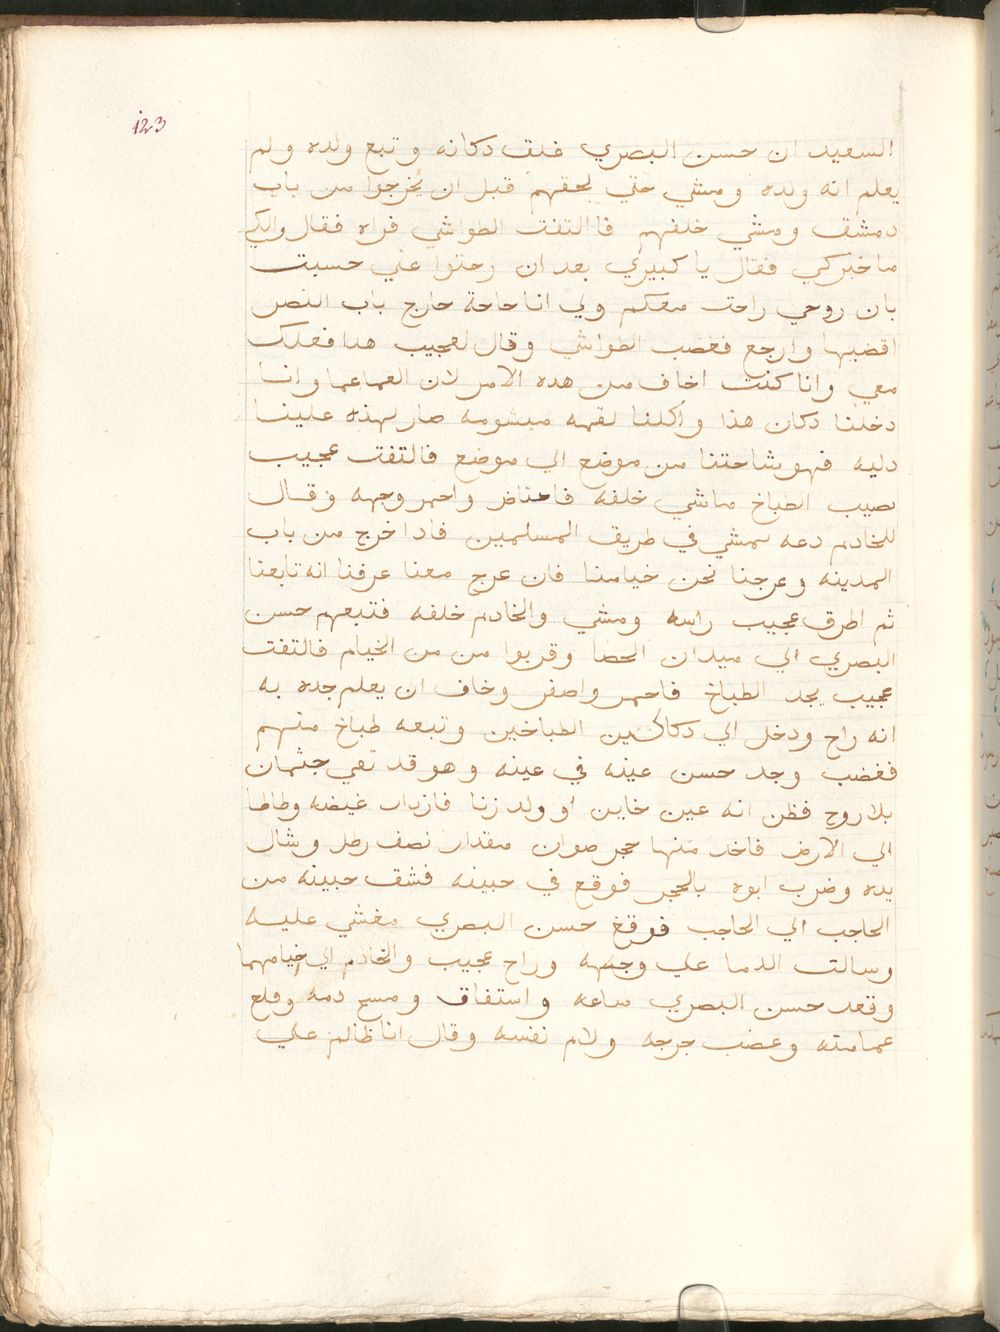 123
السعيد ان حسن البصري غلق دكانه وتبع ولده ولم
يعلم انه ولده ومشي حتي لحقهم قبل ان يخرجوا من باب
دمشق ومشي خلفهم فالتفت الطواشي فراه فقال والك
ما خبركي فقال يا كبيري بعد ان رحتوا عني حسبت
بان روحي راحت معكم ولي انا حاحة حارج باب النصر
اقضيها وارجع فغصب الطواشي وقال لعجيب هدا فعلك
معي وانا كنت اخاف من هده الامر لان العماعما وانا
دخلنا دكان هذا واكلنا لقمه ميشومه صار لهذه علينا
دليه فهو شاحتنا من موضع الي موضع فالتفت عجيب
نصيب الطباخ ماشي خلفه فاعتاض واحمر وجهه وقال
للخادم دعه يمشي في طريق المسلمين فادا خرج من باب
المدينه وعرجنا نحن خيامنا فان عرج معنا عرفنا انه تابعنا
ثم اطرق عجيب راسه ومشي والخادم خلفه فتبعهم حسن
البصري الي ميدان الحصا وقربوا من من الخيام فالتفت
عجيب يجد الطباخ فاحمر واصفر وخاف ان يعلم جده به
انه راح ودخل الي دكاكين الطباخين وتبعه طباخ منهم
فغضب وجد حسن عينه في عينه وهو قد تقي جثمان
بلا روح فظن انه عين خاين او ولد زنا فازداد غيضه وطاطا
الي الارض فاخد منها حجر صوان مقدار نصف رطل وشال
يده وضرب ابوه بالحجر فوقع في حبينه فشق حبينه من
الحاجب الي الحاجب فوقغ حسن البصري مغشي عليه
وسالت الدما علي وجهه وراح عجيب والخادم الي خيامهما
وقعد حسن البصري ساعه واستفاق ومسح دمه وقلع
عمامته وعضب جرجه ولام نفسه وقال انا ظالم علي